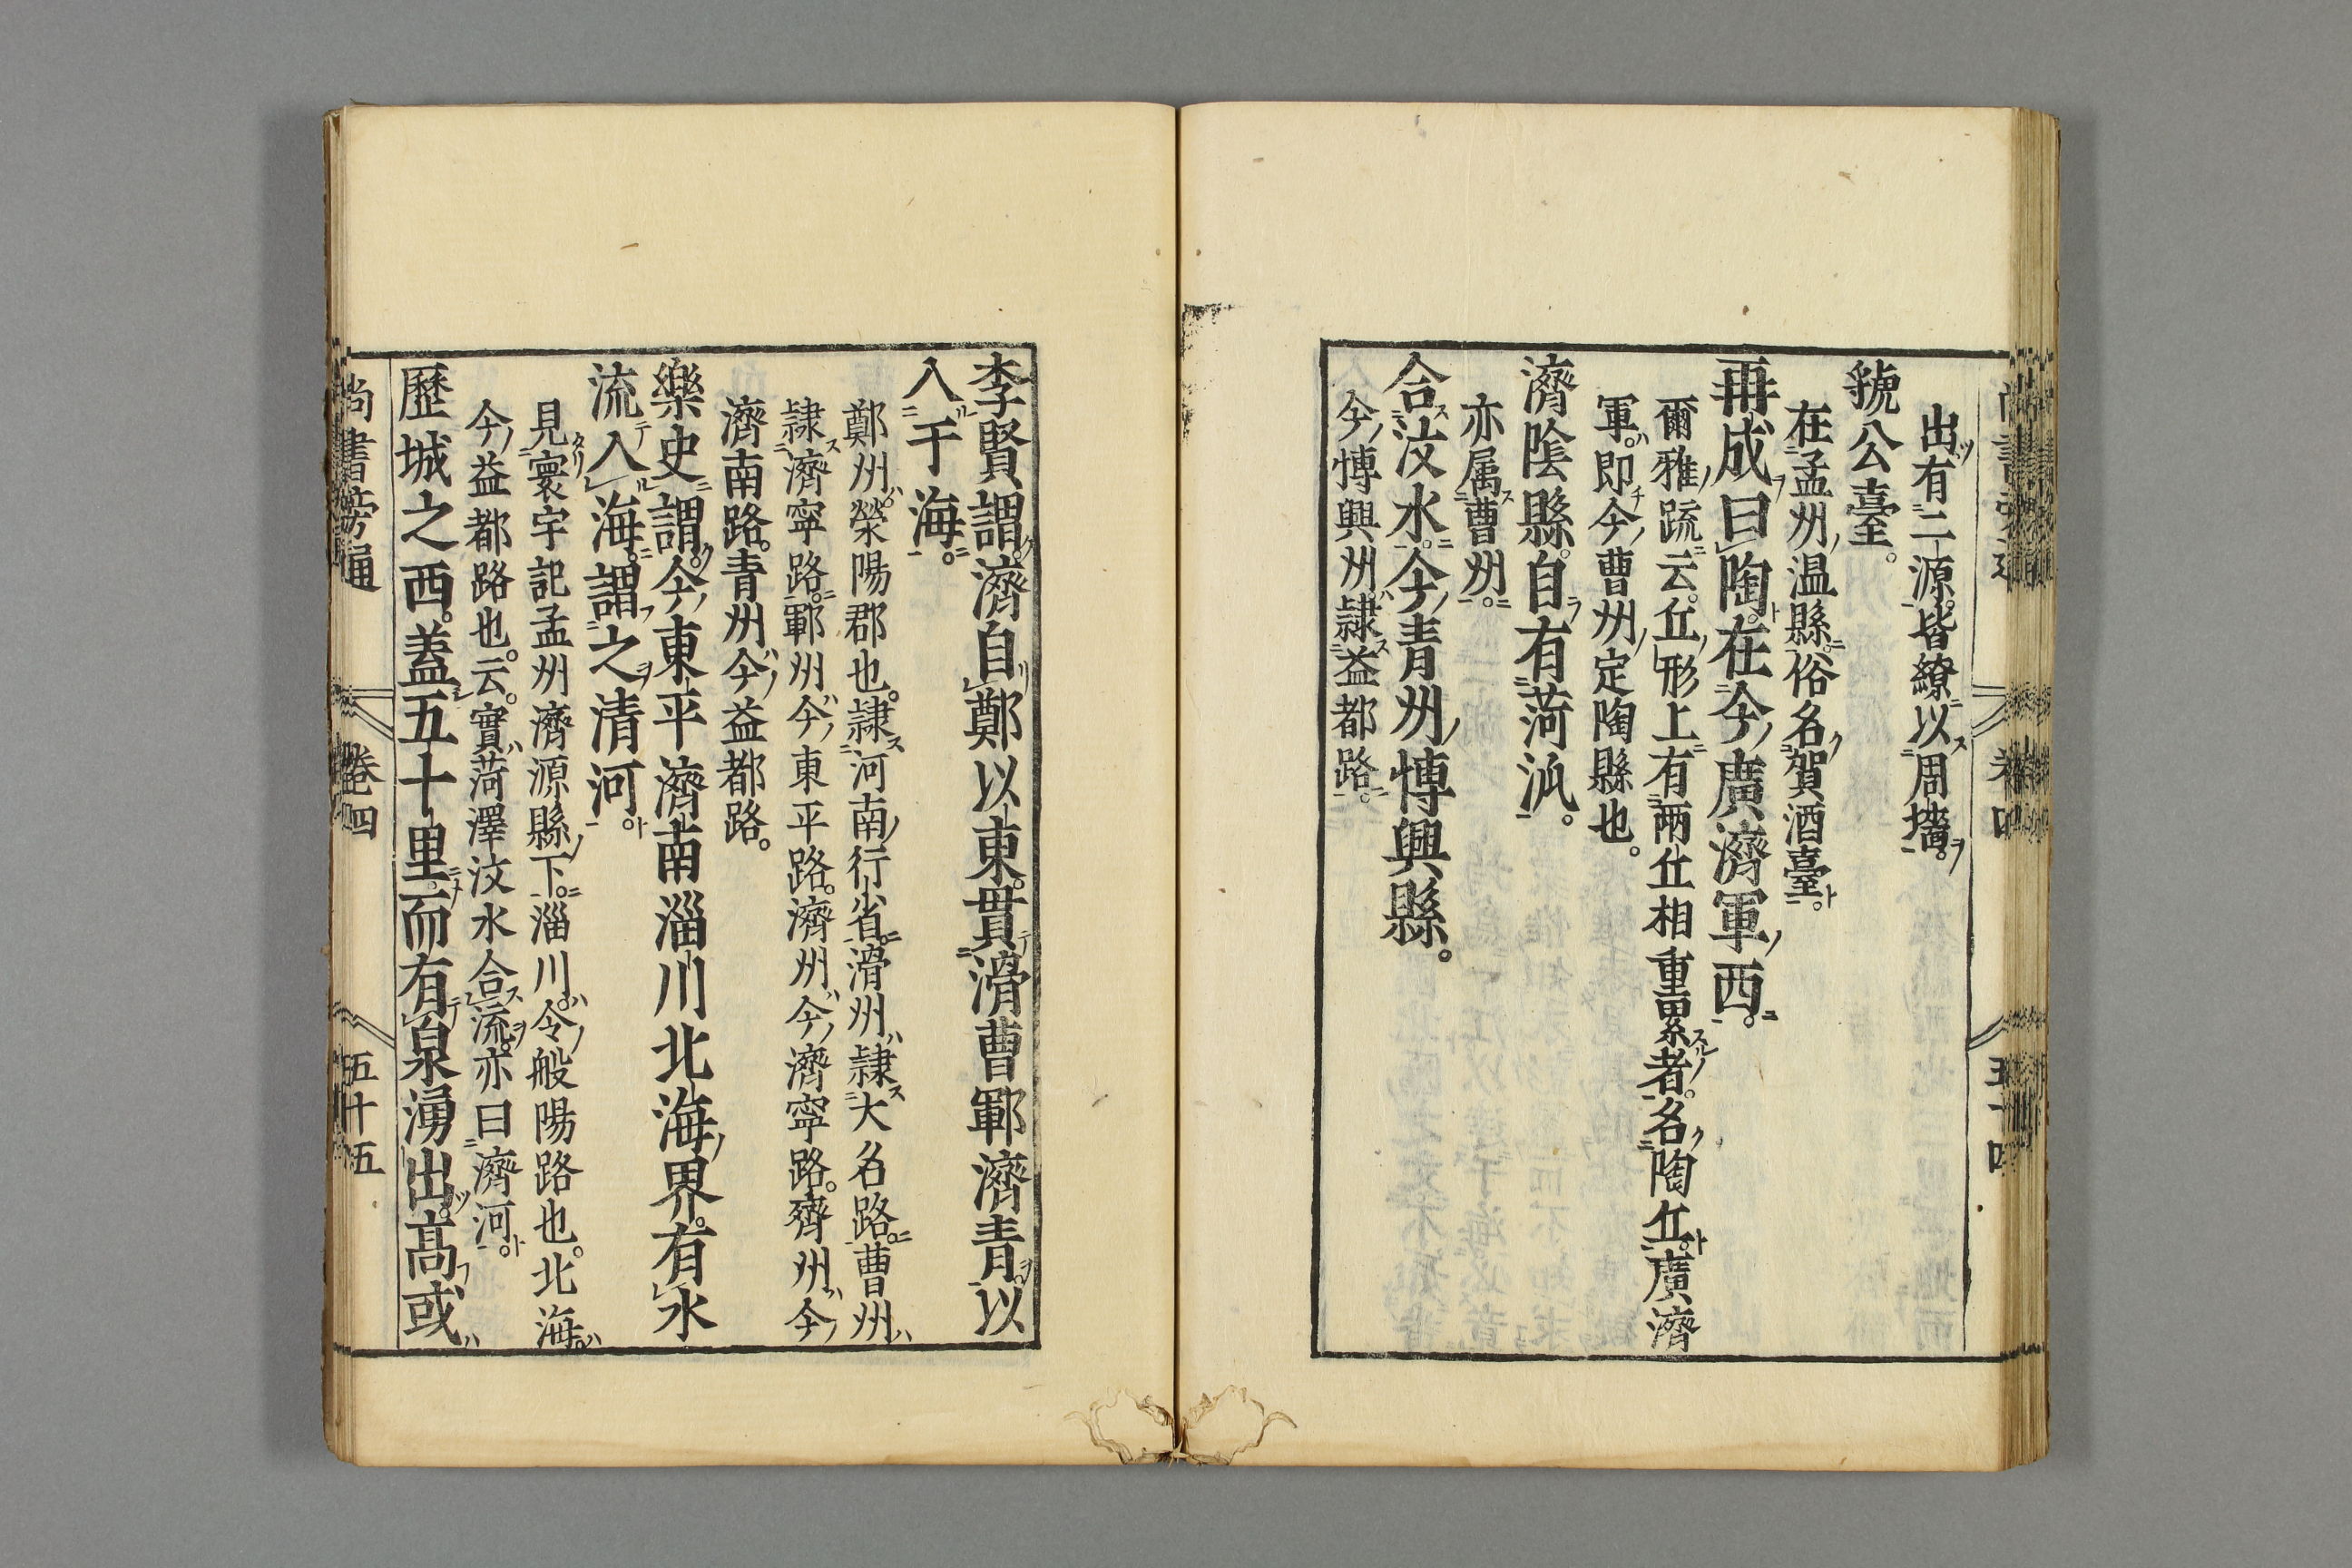 出有二源皆繚以周墻
虢公臺。
在孟州温縣俗名賀酒臺。
再成曰陶。在今廣濟軍西。
爾雅疏云。丘形上有兩丘相重累者。名陶丘。廣濟
軍。即今曹州定陶縣也。
濟陰縣。自有菏泒。
亦属曹州。
合汶水。今青州博興縣。
今博興州隷益都路。
李賢謂。濟自鄭以東。貫滑曹鄆濟青。以
入于海。
鄭州。滎陽郡也。隷河南行省。滑州隷大名路。曹州
隷濟寧路。鄆州今東平路。濟州今濟寧路。齊州今
濟南路。青州今益都路。
樂史謂。今東平濟南淄川北海界。有水
流入海。謂之清河。
見寰宇記孟州濟源縣下。淄川。今般陽路也。北海。
今益都路也。云。實菏澤汶水合流。亦曰濟河。
歷城之西。蓋五十里。而有泉湧出。高或
尚書旁通 卷四 五十五